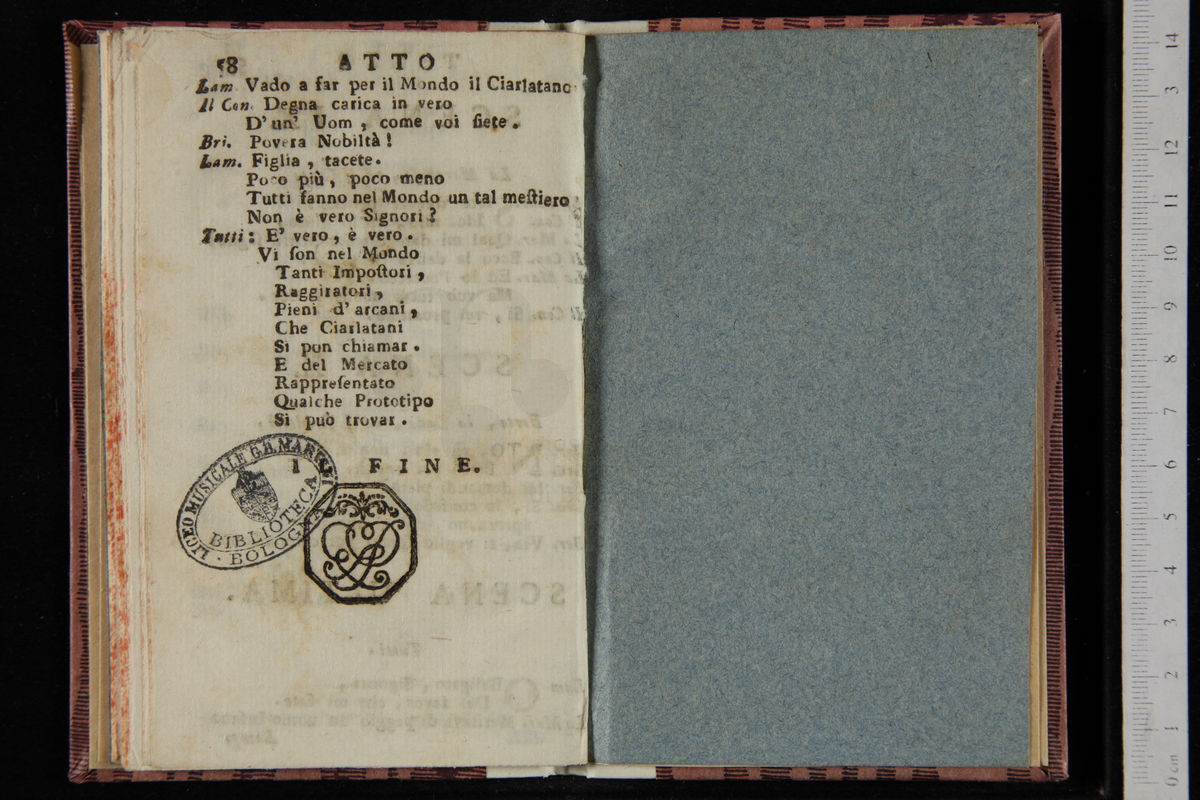 58 ATTO
Lam. Vado a far per il Mondo il Ciarlatano
Il Con. Degna carica in vero
D'un' Uom, come voi ſiete.
Bri. Povera Nobiltà!
Lam. Figlia, tacete.
Poco più, poco meno
Tutti fanno nel Mondo un tal meſtiero;
Non è vero Signori?
Tutti: E' vero, è vero.
Vi ſon nel Mondo
Tanti Impoſtori,
Raggiratori,
Pieni d'arcani,
Che Ciarlatani
Si pon chiamar.
E del Mercato
Rappreſentato
Qualche Prototipo
Si può trovar.
I FINE.
LICEO MUSICALE G.B. MARTINI
BIBLIOTECA
· BOLOGNA ·
14
13
12
11
10
9
8
7
6
5
4
3
2
1
0 cm